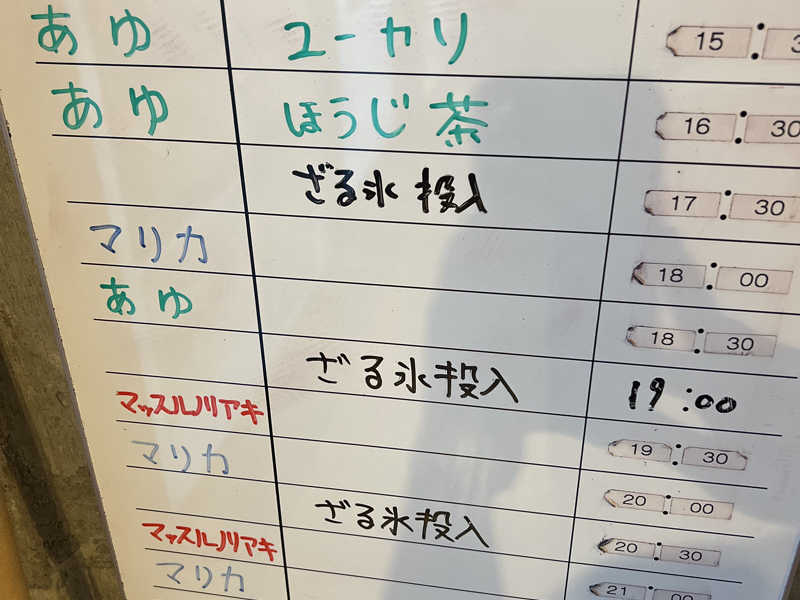 あゆ ユーカリ 15:3
あゆ ほうじ茶 16:30
ざる氷投入 17:30
マリカ 18:00
あゆ 18:30
ざる氷投入 19:00
マッスルノリアキ 19:30
マリカ 20:00
ざる氷投入 20:30
マッスルノリアキ 21:00
マリカ